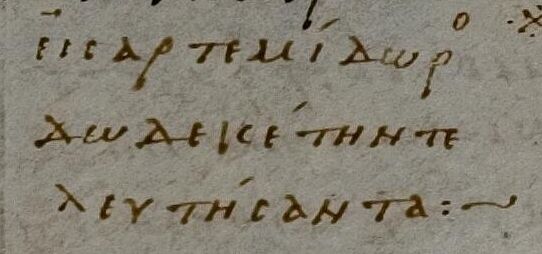 εἰς αρτεμίδωρο
δωδεκέτην τε
λευτήσαντα:~